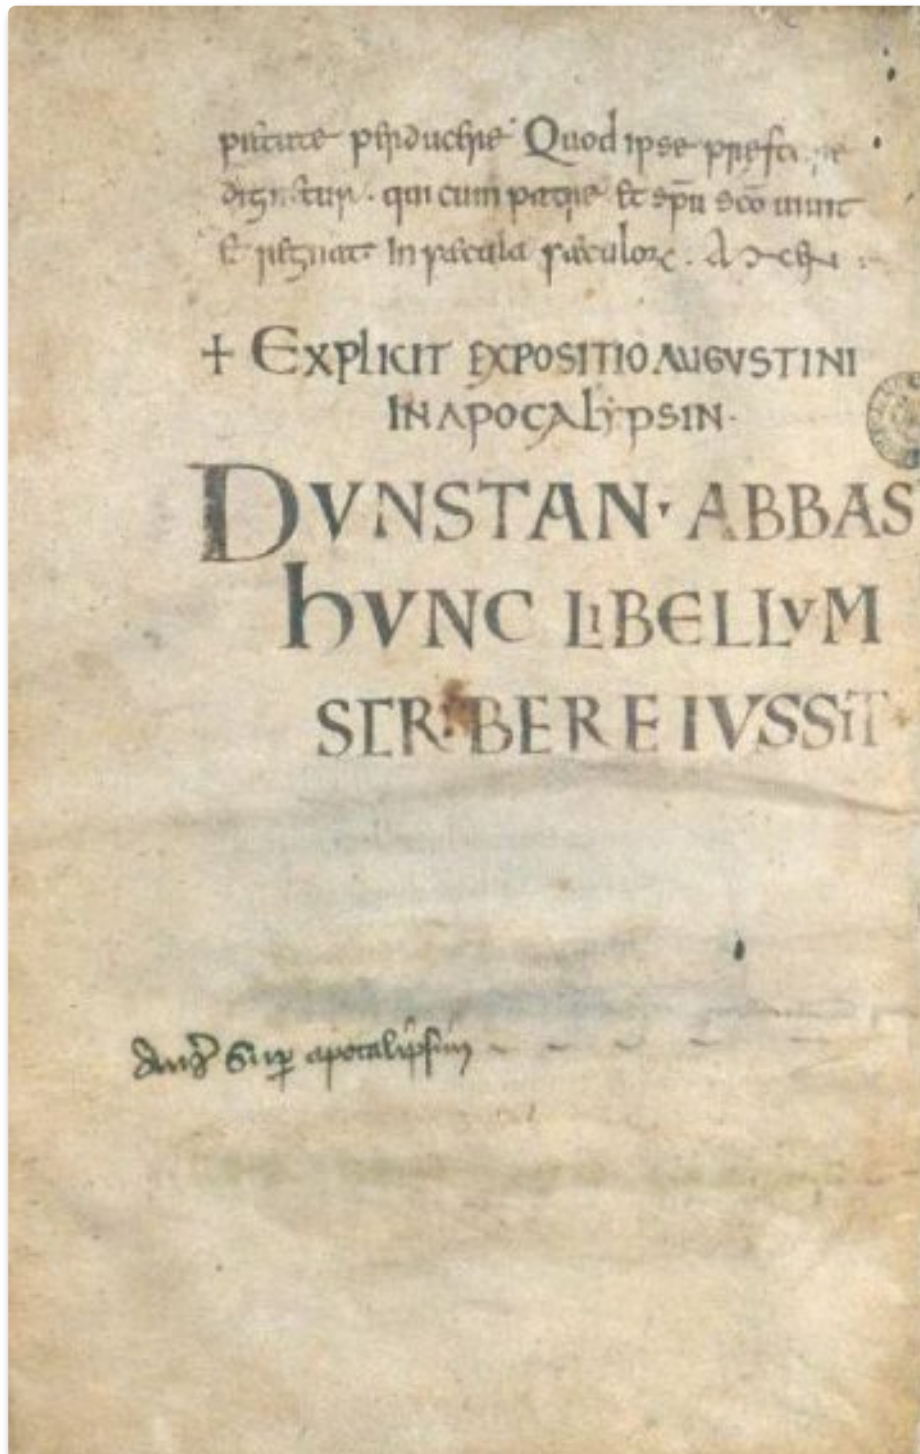 perducere Quod ipse presta
dignetur · qui cum patre et spu sco uiuit
et regnat In saecula saeculorꝫ · Amen :
+ EXplICIT EXPOSITIO AUGVSTINI
IN APOCAlYPSIN ·
DVNSTAN · ABBAS
hVNC LIBELLVM
SCRIBERE IVSSIT
Aug Sup apocalipsim